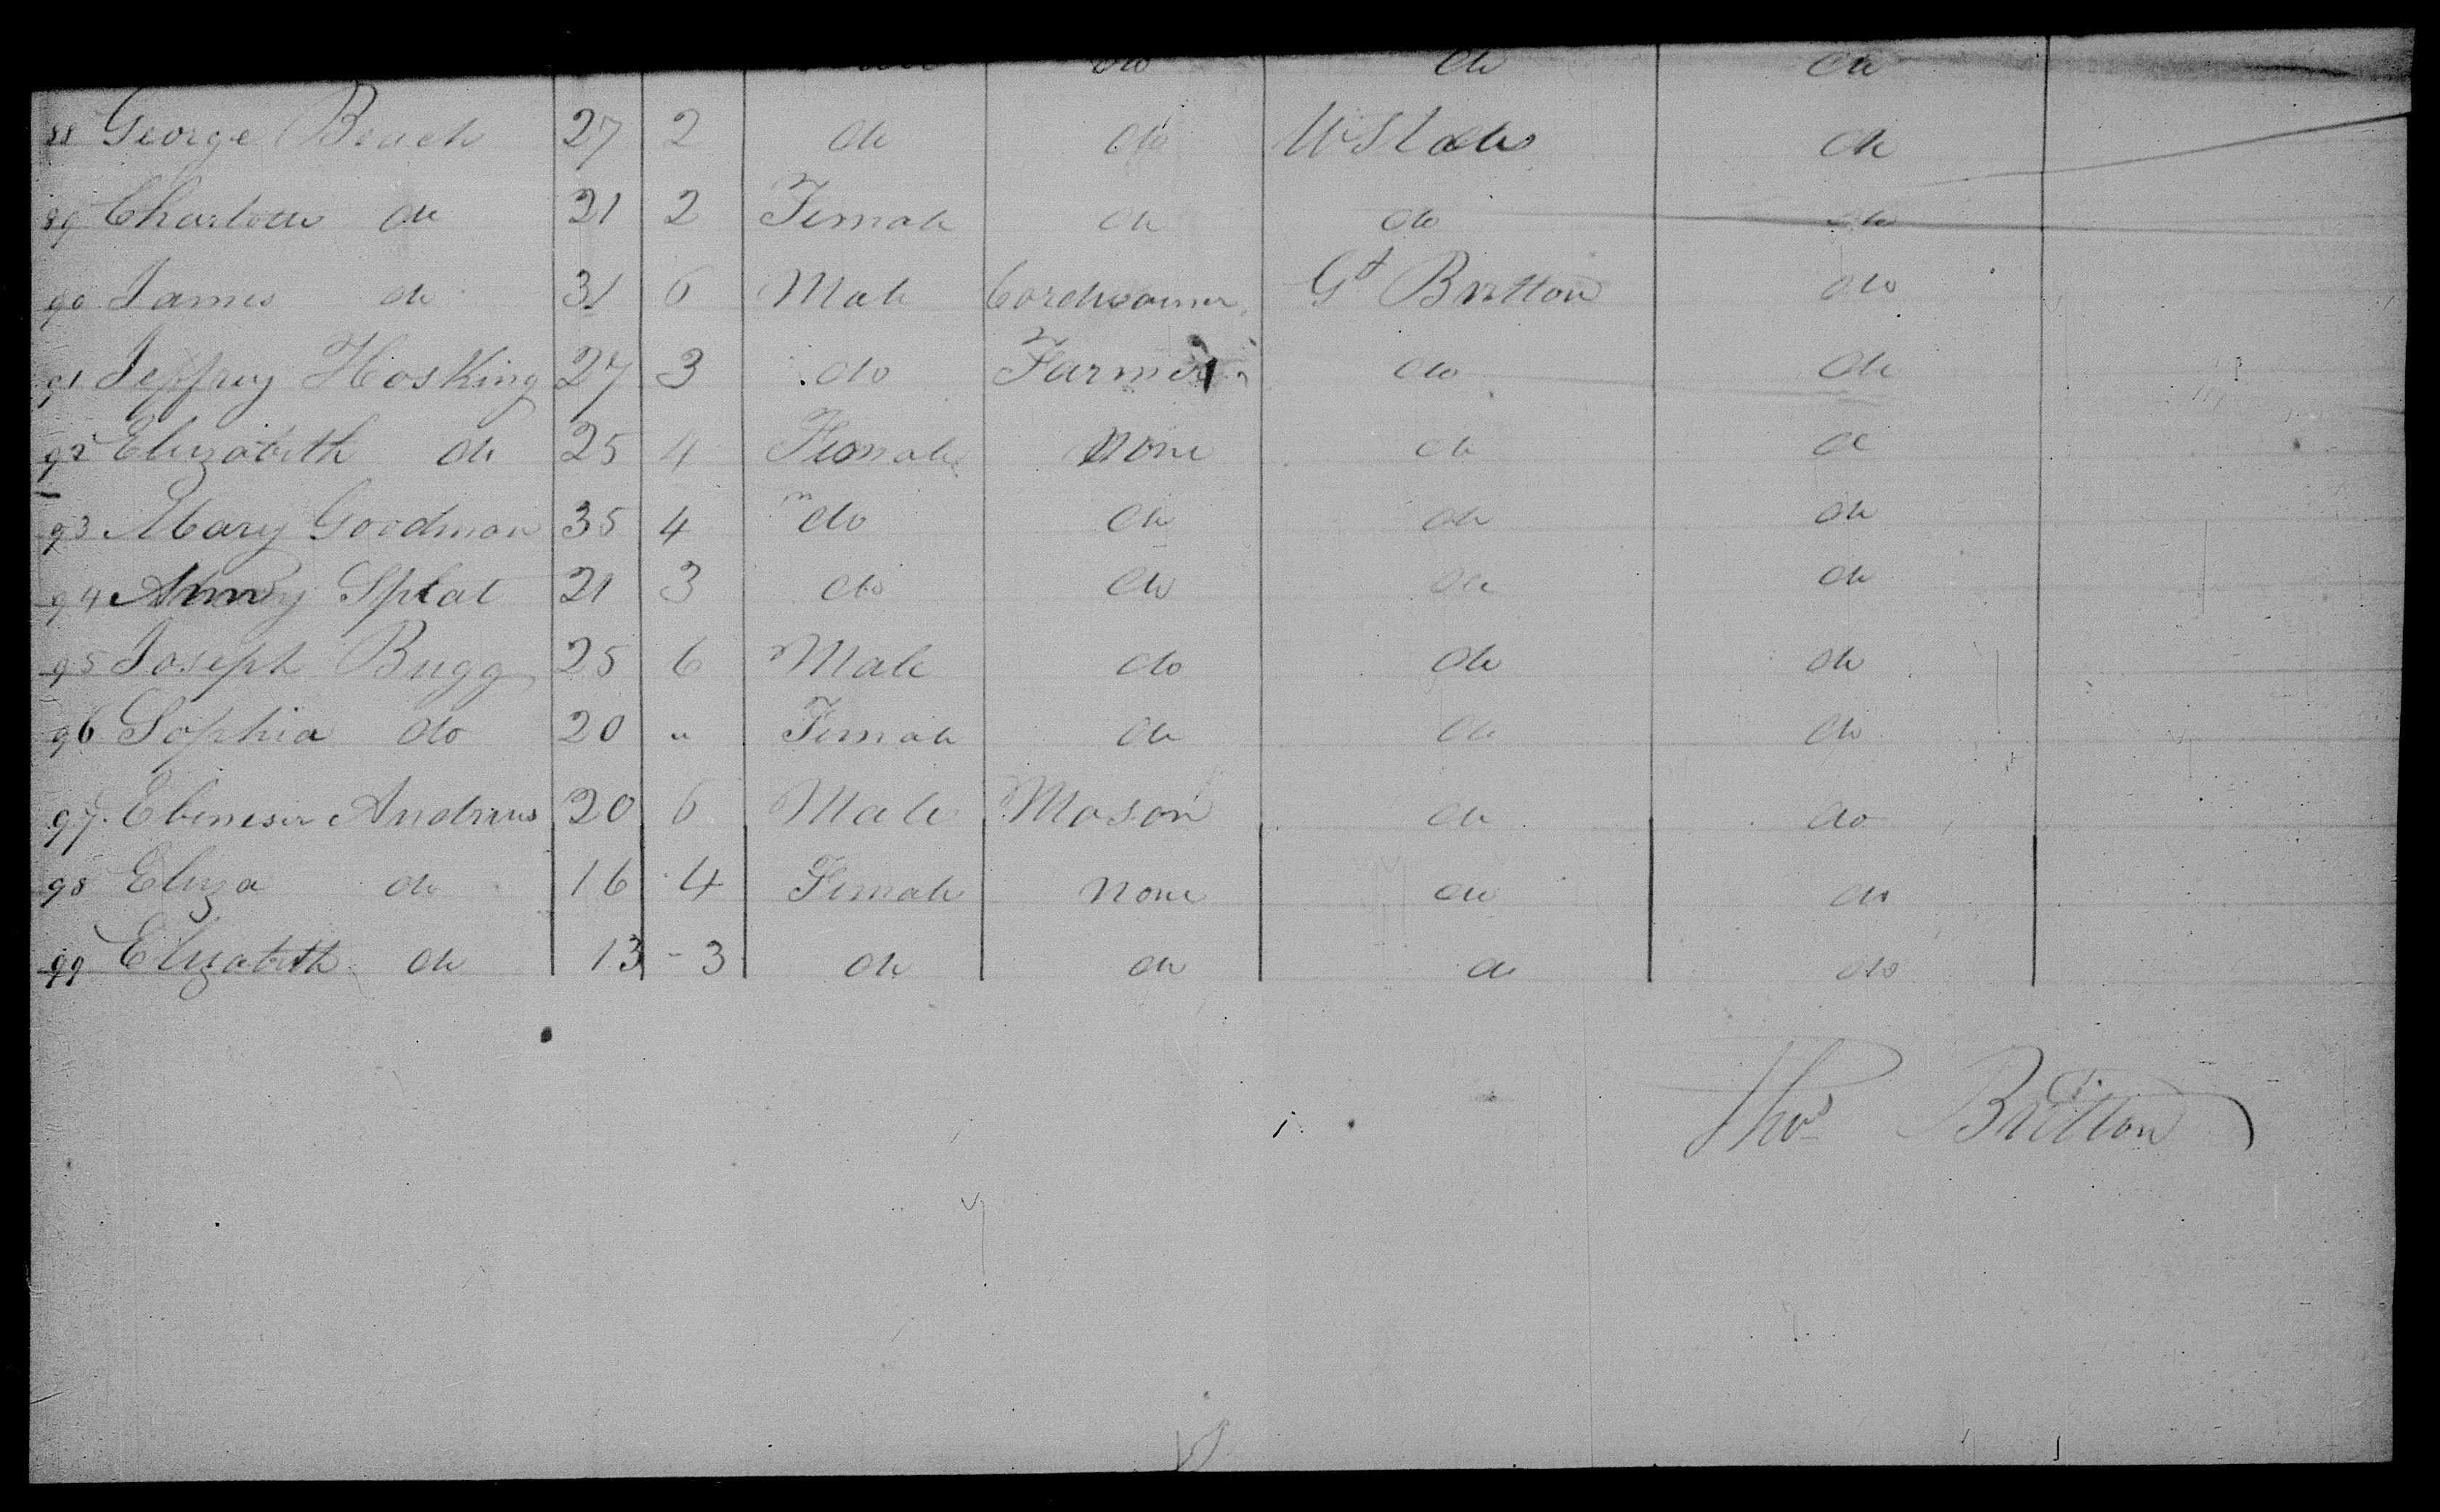 do do do
88 George Beach 27 2 do do U States do
89 Charlotte do 21 2 Female do do do
90 James do 31 6 Male Cordwainer Gt Britton do
91 Jeffrey Hosking 27 3 do Farmer do do
92 Elizabeth do 25 4 Female None do do
93 Mary Goodman 35 4 do do do do
94 Splat 21 3 do do do do
95 Joseph Bugg 25 6 Male do do do
96 Sophia do 20 " Female do do do
97 Ebeneser Andrews 20 6 Male Mason do do
98 Eliza do 16 4 Female none do do
99 Elizabeth do 13 - 3 do do do do
Thos Britton